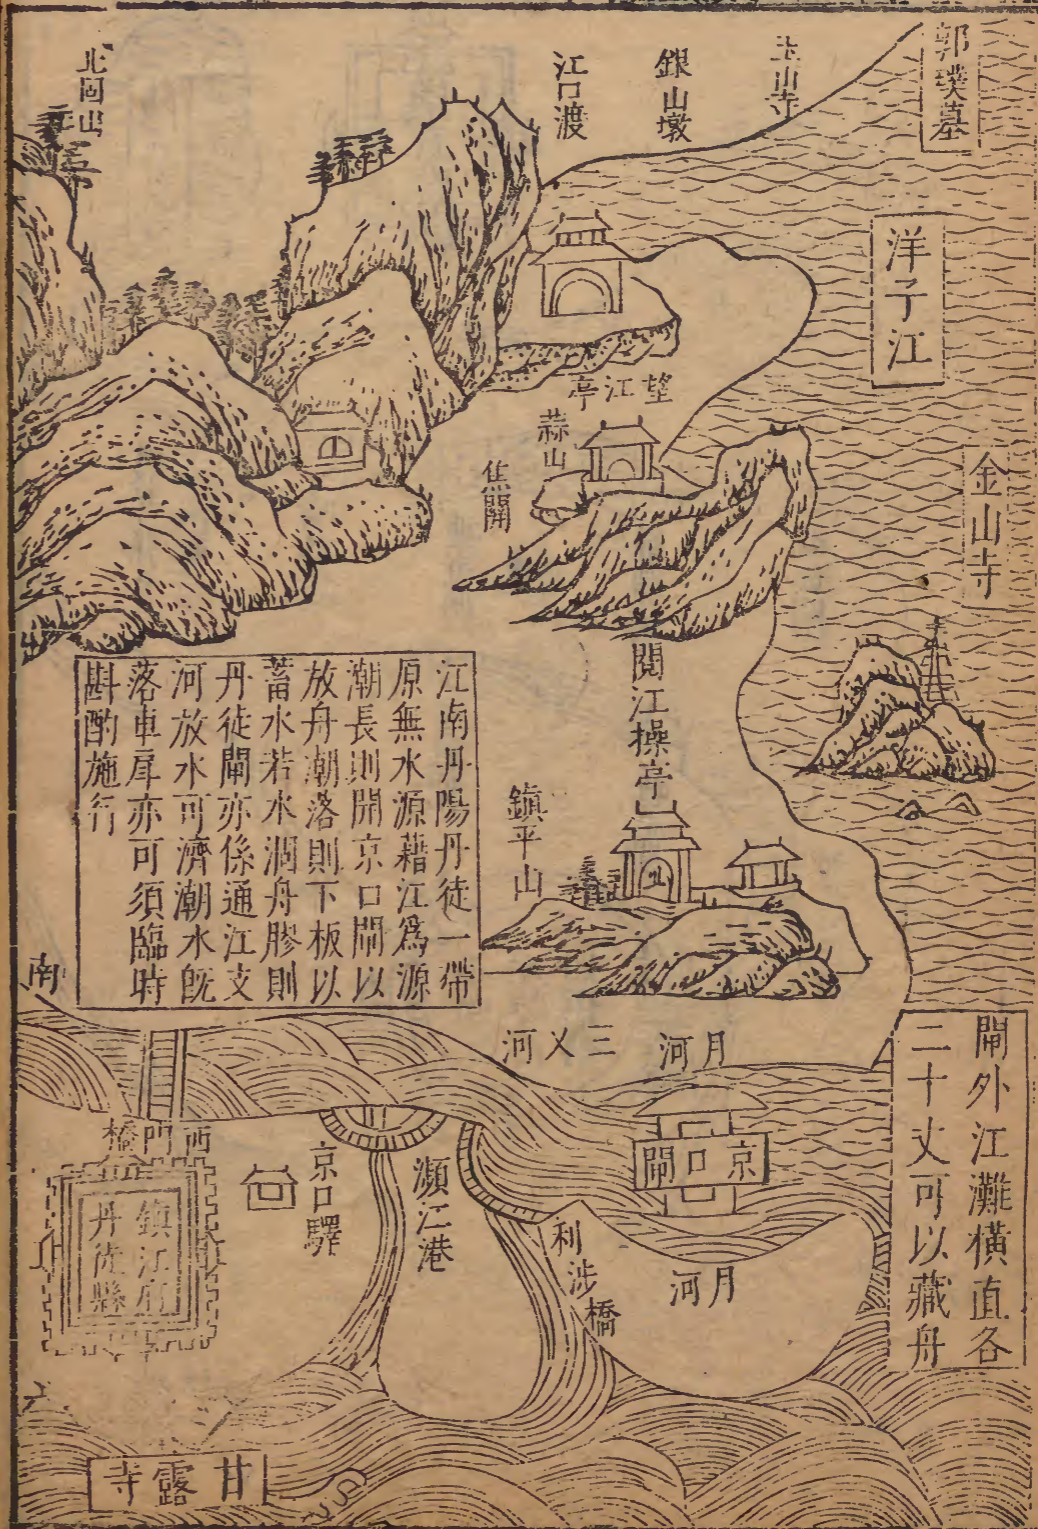 郭璞墓
玉山寺
銀山墩
江口渡
北固山
洋子江
金山寺
望江亭
蒜山
焦閘
閱江操亭
鎮平山
江南丹陽丹徒一帶
原無水源藉江爲源
潮長則開京口閘以
放舟潮落則下板以
蓄水若水涸舟膠則
丹徒閘亦係通江支
河放水可濟潮水旣
落車戽亦可須臨時
斟酌施行
南
閘外江灘橫直各
二十丈可以藏舟
月河
三乂河
京口閘
月河
利涉橋
瀕江港
京口驛
西門橋
鎮江府
丹徒縣
甘露寺